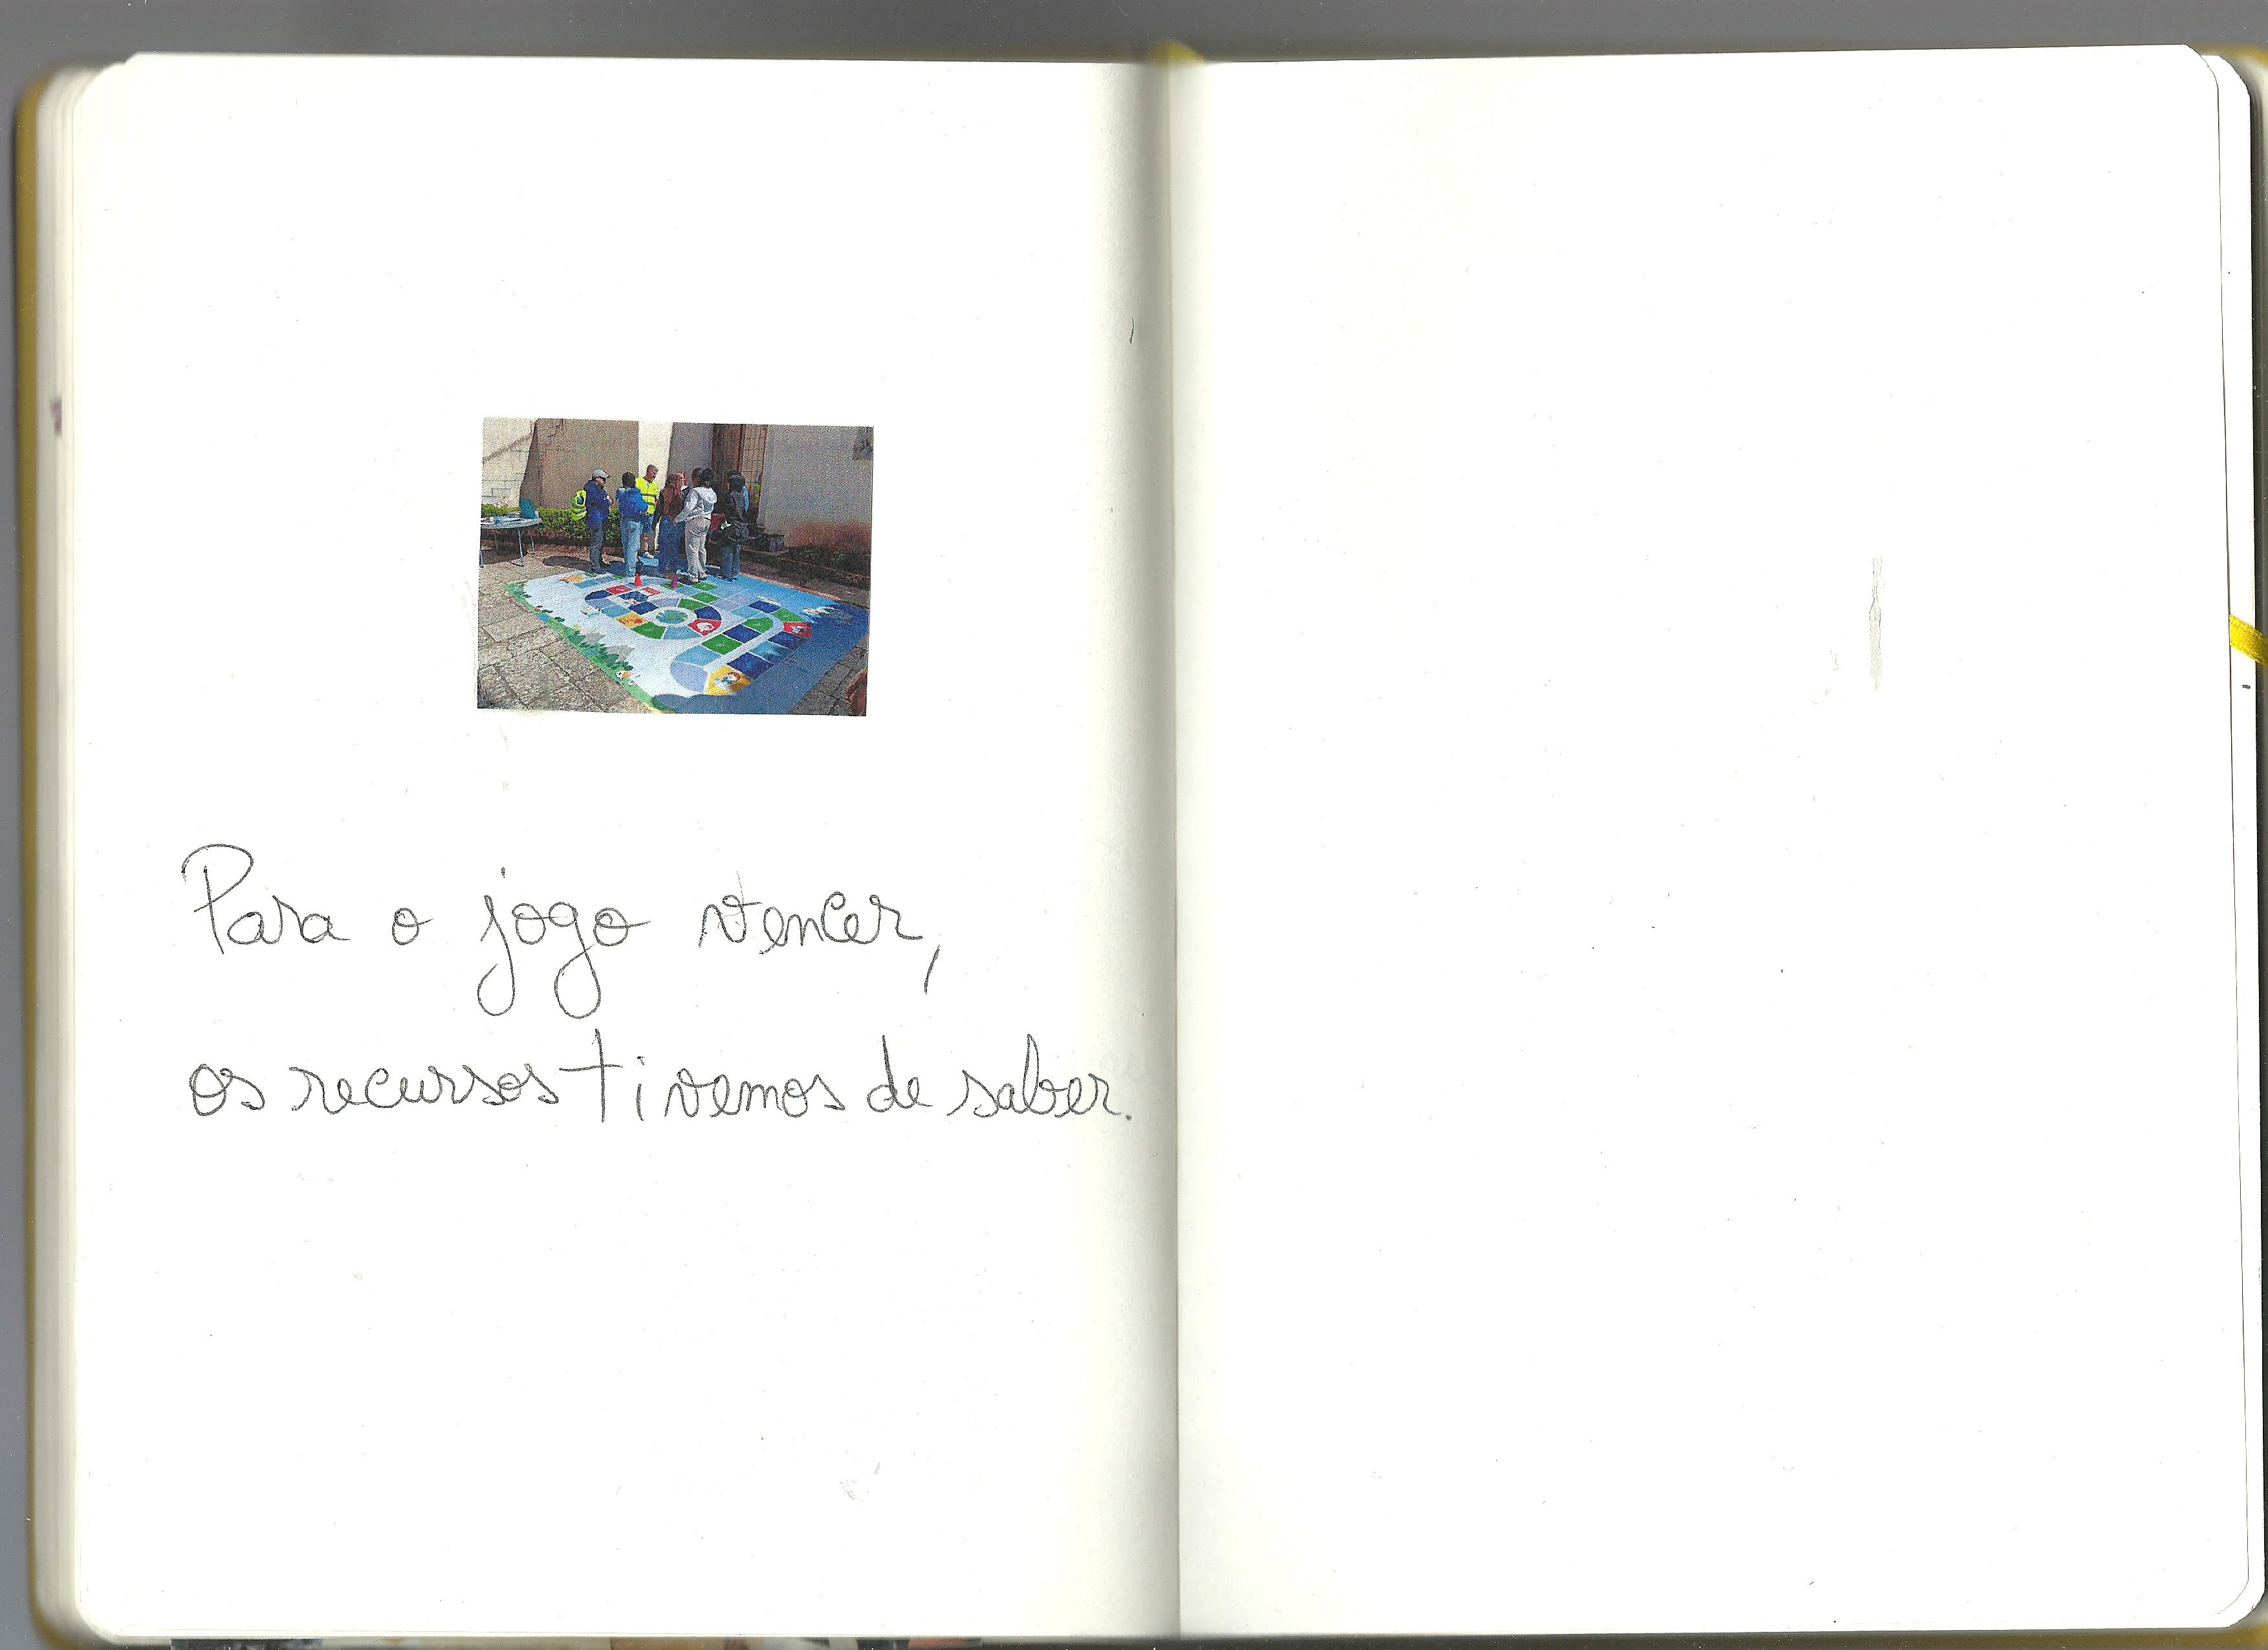 Para o jogo vencer,
os recursos tivemos de saber.